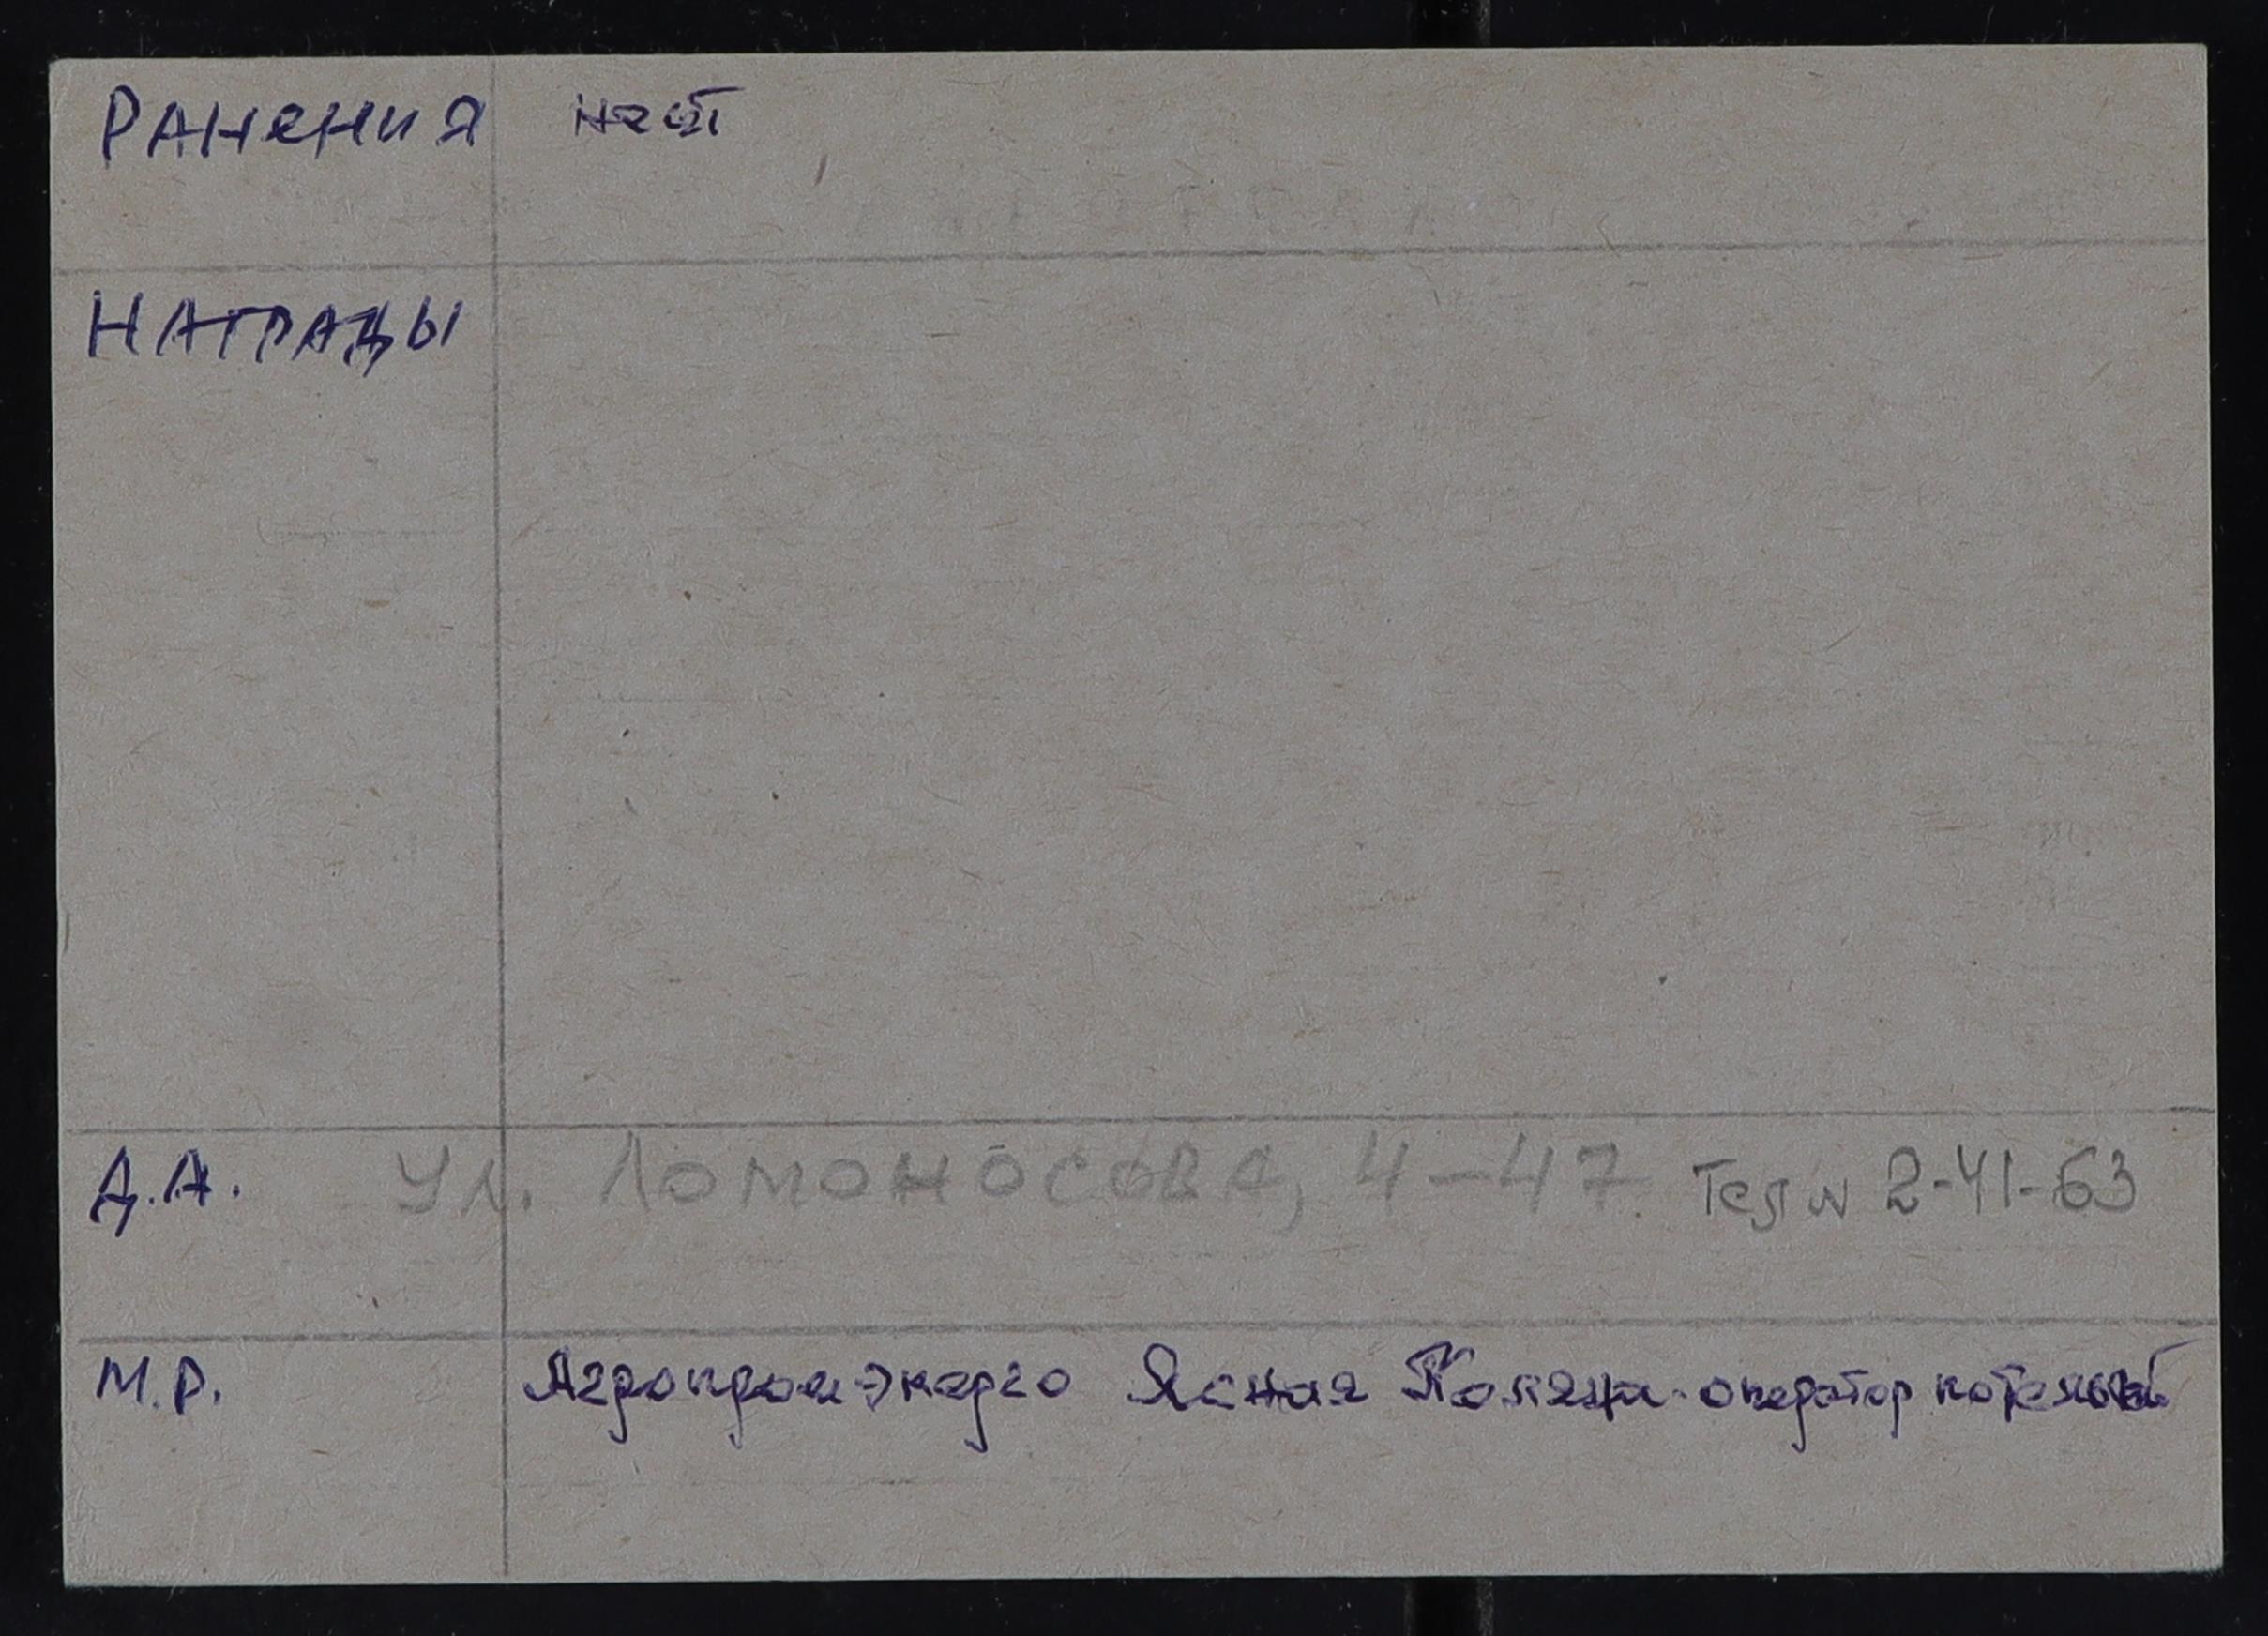 РАНЕНИЯ нет
НАГРАДЫ
Д.А. ул. ЛОМОНОСОВА, 4-47 Тел № 2-41-63
М.Р. Агропромэнерго Ясная Поляна-оператор котельной